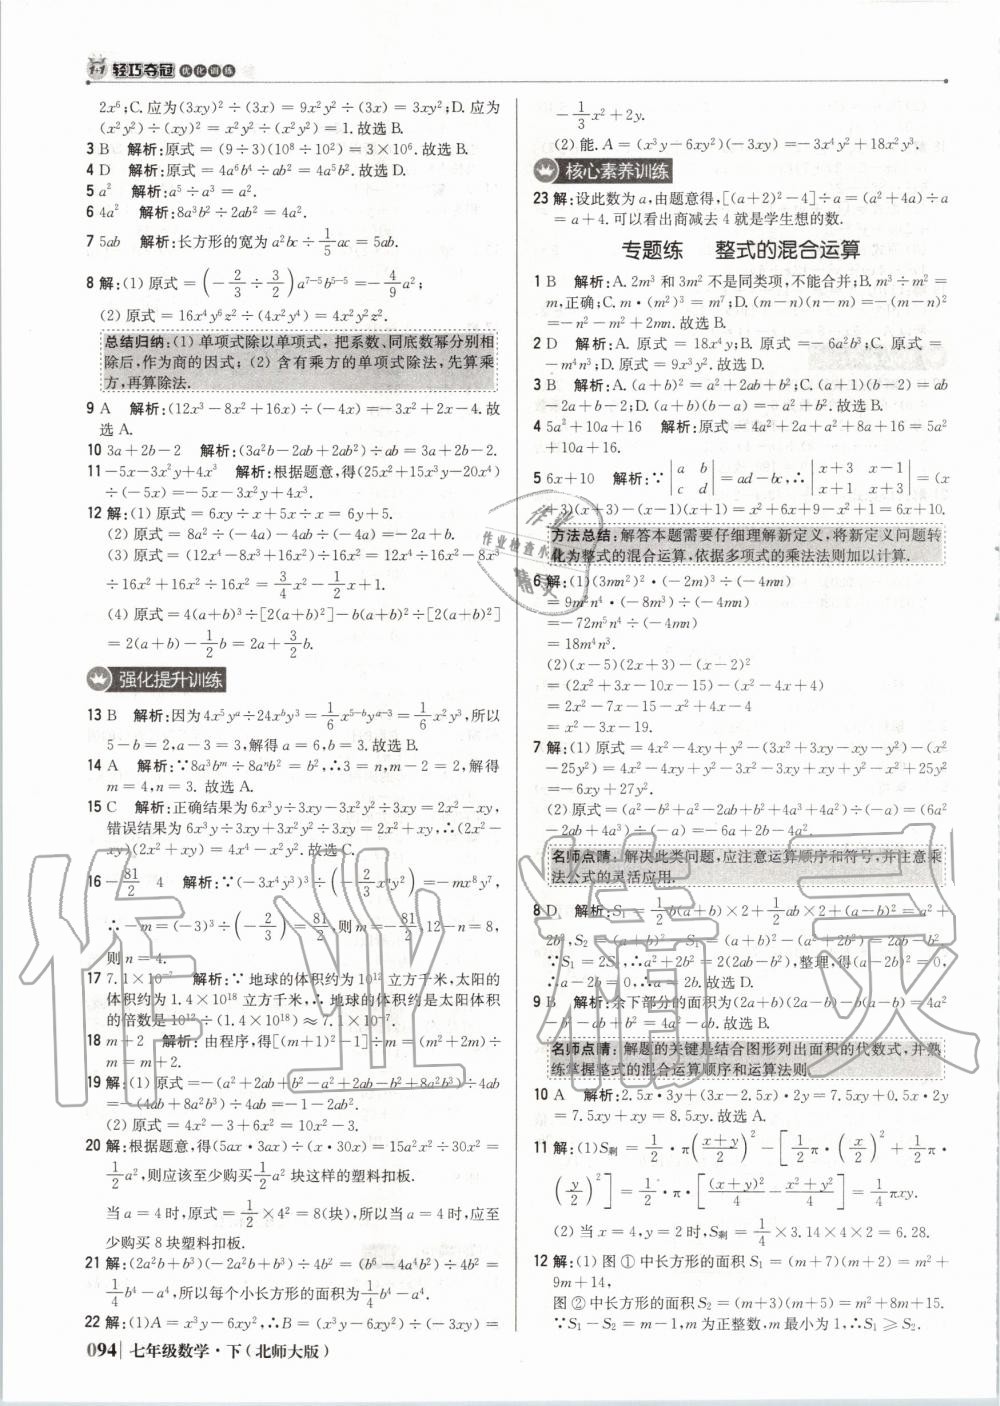 1+1 轻巧夺冠 优化训练
2x⁶;C.应为(3xy)²÷(3x)=9x²y²÷(3x)=3xy²;D.应为
(x²y²)÷(xy)²=x²y²÷(x²y²)=1.故选B.
3 B 解析:原式=(9÷3)(10⁸÷10²)=3×10⁶.故选B.
4 D 解析:原式=4a⁶b⁴÷ab²=4a⁵b².故选D.
5 a² 解析:a⁵÷a³=a².
6 4a² 解析:8a³b²÷2ab²=4a².
7 5ab 解析:长方形的宽为a²bc÷1/5ac=5ab.
8 解:(1)原式=(-2/3÷3/2)a⁷⁻⁵b⁵⁻⁵=-4/9a²;
(2)原式=16x⁴y⁶z²÷(4x²y⁴)=4x²y²z².
总结归纳:(1)单项式除以单项式,把系数、同底数幂分别相
除后,作为商的因式;(2)含有乘方的单项式除法,先算乘
方,再算除法.
9 A 解析:(12x³-8x²+16x)÷(-4x)=-3x²+2x-4.故
选A.
10 3a+2b-2 解析:(3a²b-2ab+2ab²)÷ab=3a+2b-2.
11 -5x-3x²y+4x³ 解析:根据题意,得(25x²+15x³y-20x⁴)
÷(-5x)=-5x-3x²y+4x³.
12 解:(1)原式=6xy÷x+5x÷x=6y+5.
(2)原式=8a²÷(-4a)-4ab÷(-4a)=-2a+b.
(3)原式=(12x⁴-8x³+16x²)÷16x²=12x⁴÷16x²-8x³
÷16x²+16x²÷16x²=3/4x²-1/2x+1.
(4)原式=4(a+b)³÷[2(a+b)²]-b(a+b)²÷[2(a+b)²]
=2(a+b)-1/2b=2a+3/2b.
强化提升训练
13 B 解析:因为4x⁵yᵃ÷24xᵇy³=1/6x⁵⁻ᵇyᵃ⁻³=1/6x²y³,所以
5-b=2,a-3=3,解得a=6,b=3.故选B.
14 A 解析:∵8a³bᵐ÷8aⁿb²=b²,∴3=n,m-2=2,解得
m=4,n=3.故选A.
15 C 解析:正确结果为6x³y÷3xy-3x²y²÷3xy=2x²-xy,
错误结果为6x³y÷3xy+3x²y²÷3xy=2x²+xy,∴(2x²-
xy)(2x²+xy)=4x⁴-x²y².故选C.
16 -81/2 4 解析:∵(-3x⁴y³)³÷(-2/3xⁿy²)=-mx⁸y⁷,
∴-m=(-3)³÷(-2/3)=81/2,则m=-81/2,12-n=8,
则n=4.
17 7.1×10⁻⁷ 解析:∵地球的体积约为10¹²立方千米,太阳的
体积约为1.4×10¹⁸立方千米,∴地球的体积约是太阳体积
的倍数是10¹²÷(1.4×10¹⁸)≈7.1×10⁻⁷.
18 m+2 解析:由程序,得[(m+1)²-1]÷m=(m²+2m)÷
m=m+2.
19 解:(1)原式=-(a²+2ab+b²-a²+2ab-b²-4b²+8a²b³)=
-(4ab+8a²b³-4b²)=-4ab-8a²b³+4b².
(2)原式=4x²-3+6x²=10x²-3.
20 解:根据题意,得(5ax·3ax)÷(x·30x)=15a²x²÷30x²=
1/2a²,则应该至少购买1/2a²块这样的塑料扣板.
当a=4时,原式=1/2×4²=8(块),所以当a=4时,应至
少购买8块塑料扣板.
21 解:(2a²b+b³)(-2a²b+b³)÷4b²=(b⁶-4a⁴b²)÷4b²=
1/4b⁴-a⁴,所以每个小长方形的面积为1/4b⁴-a⁴.
22 解:(1)A=x³y-6xy²,∴B=(x³y-6xy²)÷(-3xy)=
-1/3x²+2y.
(2)能.A=(x³y-6xy²)(-3xy)=-3x⁴y²+18x²y³.
核心素养训练
23 解:设此数为a,由题意得,[(a+2)²-4]÷a=(a²+4a)÷a
=a+4.可以看出商减去4就是学生想的数.
专题练 整式的混合运算
1 B 解析:A.2m³和3m²不是同类项,不能合并;B.m³÷m²=
m,正确;C.m·(m²)³=m⁷;D.(m-n)(n-m)=-(m-n)²
=-n²-m²+2mn.故选B.
2 D 解析:A.原式=18x⁴y;B.原式=-6a²b²;C.原式=
-m⁴n³;D.原式=9x³y².故选D.
3 B 解析:A.(a+b)²=a²+2ab+b²;C.(a+1)(b-2)=ab
-2a+b-2;D.(a+b)(b-a)=-a²+b².故选B.
4 5a²+10a+16 解析:原式=4a²+2a+a²+8a+16=5a²
+10a+16.
5 6x+10 解析:∵|a b; c d|=ad-bc,∴|x+3 x-1; x+1 x+3|=(x
+3)(x+3)-(x-1)(x+1)=x²+6x+9-x²+1=6x+10.
方法总结:解答本题需要仔细理解新定义,将新定义问题转
化为整式的混合运算,依据多项式的乘法法则加以计算.
6 解:(1)(3mn²)²·(-2m)³÷(-4mn)
=9m²n⁴·(-8m³)÷(-4mn)
=-72m⁵n⁴÷(-4mn)
=18m⁴n³.
(2)(x-5)(2x+3)-(x-2)²
=(2x²+3x-10x-15)-(x²-4x+4)
=2x²-7x-15-x²+4x-4
=x²-3x-19.
7 解:(1)原式=4x²-4xy+y²-(3x²+3xy-xy-y²)-(x²
-25y²)=4x²-4xy+y²-3x²-3xy+xy+y²-x²+25y²
=-6xy+27y².
(2)原式=(a²-b²+a²-2ab+b²+4a³+4a²)÷(-a)=(6a²
-2ab+4a³)÷(-a)=-6a+2b-4a².
名师点睛:解决此类问题,应注意运算顺序和符号,并注意乘
法公式的灵活应用.
8 D 解析:S₁=1/2b(a+b)×2+1/2ab×2+(a-b)²=a²+
2b²,S₂=(a+b)²-S₁=(a+b)²-(a²+2b²)=2ab-b²,
∵S₁=2S₂,∴a²+2b²=2(2ab-b²),整理,得(a-2b)²=0,
∴a-2b=0,∴a=2b.故选D.
9 B 解析:余下部分的面积为(2a+b)(2a-b)-b(a-b)=4a²
-b²-ab+b²=4a²-ab.故选B.
名师点睛:解题的关键是结合图形列出面积的代数式,并熟
练掌握整式的混合运算顺序和运算法则.
10 A 解析:2.5x·3y+(3x-2.5x)·2y=7.5xy+0.5x·2y
=7.5xy+xy=8.5xy.故选A.
11 解:(1)S剩=1/2·π((x+y)/2)²-[1/2π·(x/2)²+1/2π
·(y/2)²]=1/2·π·[(x+y)²/4-(x²+y²)/4]=1/4πxy.
(2)当x=4,y=2时,S剩=1/4×3.14×4×2=6.28.
12 解:(1)图①中长方形的面积S₁=(m+7)(m+2)=m²+
9m+14,
图②中长方形的面积S₂=(m+3)(m+5)=m²+8m+15.
∵S₁-S₂=m-1,m为正整数,m最小为1,∴S₁⩾S₂.
094 七年级数学·下(北师大版)
作业检查小
精灵
作业精灵